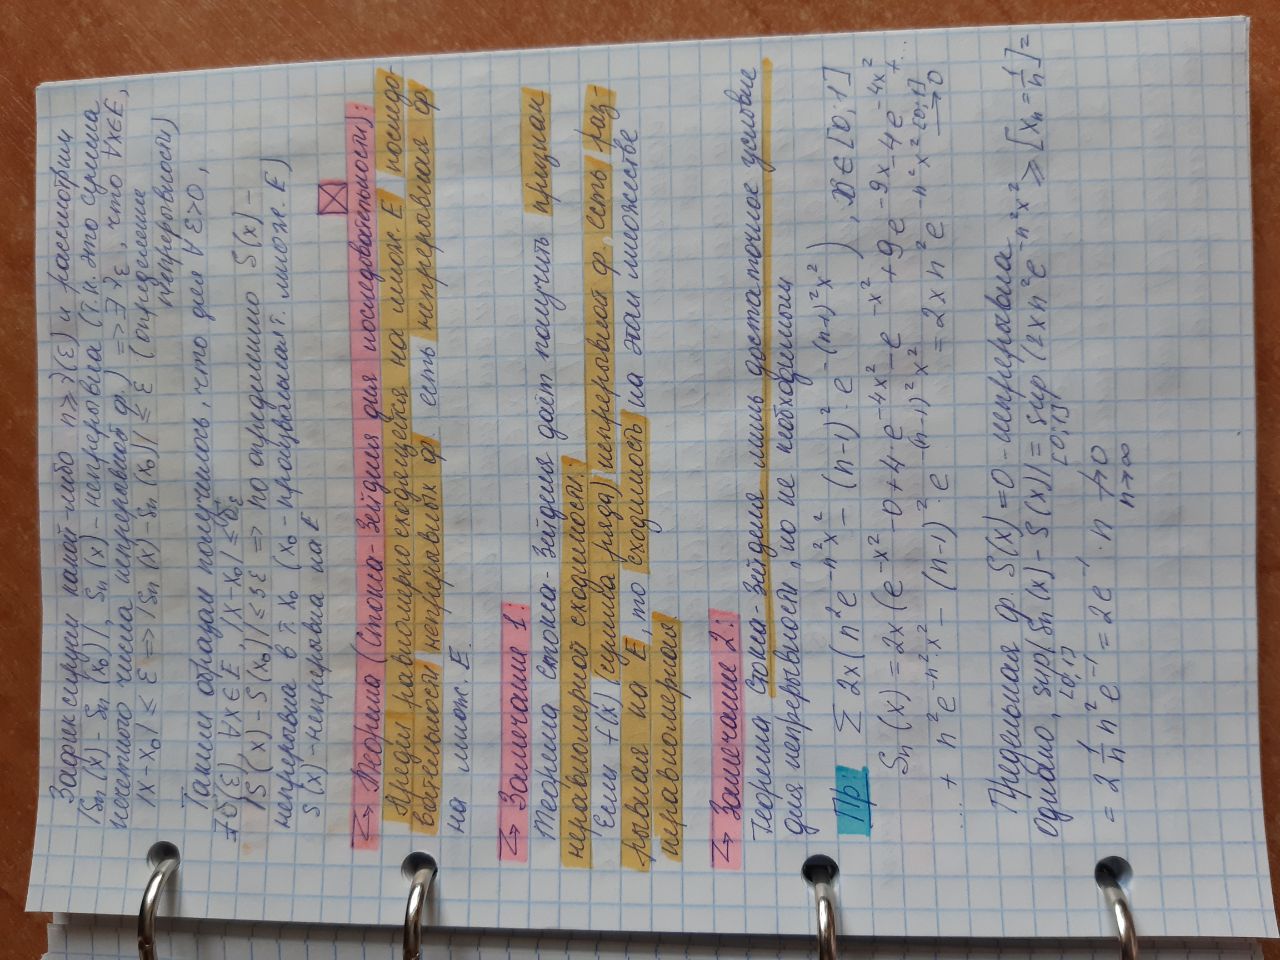 Зафиксируем какой-либо n ≥ γ(ε) и рассмотрим
|Sₙ(x) - Sₙ(x₀)|, Sₙ(x) - непрерывна (т.к. это сумма
нечетного числа непрерывной ф.) => ∃ , что ∀x∈E,
|x-x₀| ≤ ε => |Sₙ(x) - Sₙ(x₀)| ≤ ε (определение
непрерывности)
Таким образом получилось, что для ∀ ε>0,
∃δ(ε), ∀x∈E, |x-x₀| ≤ δ_ε
|S(x) - S(x₀)| ≤ 3ε => по определению S(x) -
непрерывна в т. x₀ (x₀ - произвольная т. множ. E)
S(x) - непрерывна на E
→ Теорема (Стокса-Зейделя для последовательности):
Предел равномерно сходящейся на множ. E последо-
вательности непрерывных ф. есть непрерывная ф.
на множ. E.
→ Замечание 1:
Теорема Стокса-Зейделя даёт получить признак
неравномерной сходимости:
Если f(x) (сумма ряда) непрерывной ф. есть раз-
рывная на E, то сходимость на этом множестве
неравномерная.
→ Замечание 2:
Теорема Стокса-Зейделя лишь достаточное условие
для непрерывности, но не необходимым
Пр: Σ 2x(n²e^{-n²x²} - (n-1)²·e^{-(n-1)²x²}), x∈[0;1]
Sₙ(x) = 2x(e^{-x²} - 0 + 4·e^{-4x²} - e^{-x²} + 9e^{-9x} - 4e^{-4x²} + ...
... + n²e^{-n²·x²} - (n-1)²·e^{-(n-1)²x²} = 2xn²e^{-n²x²} →^{[0;1]} 0
Предельная ф. S(x) = 0 - непрерывна
однако, sup_{[0;1]} |Sₙ(x) - S(x)| = sup_{[0;1]} (2xn²e^{-n²x²} ≥ [xₙ = 1/n] =
= 2 1/n n²e^{-1} = 2e^{-1}·n ↛ 0
n→∞